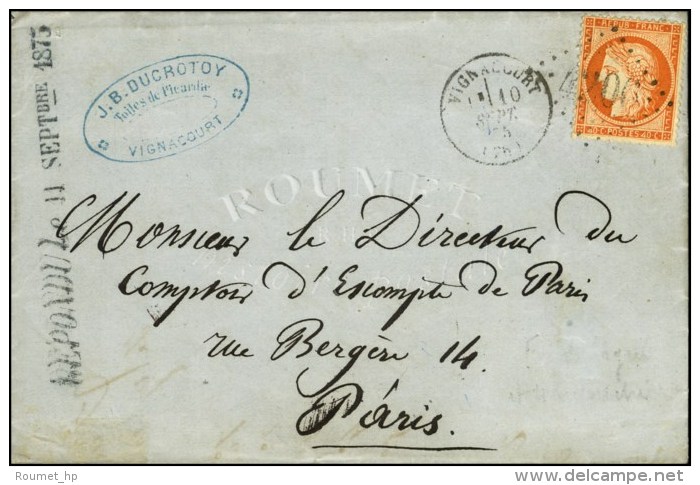 J. B. DUCROTOY
Toiles de Picardie
VIGNACOURT
VIGNACOURT
10
SEPT.
75
(76)
REPUB. FRANC.
40 C POSTES 40 C
REPONDU Le 11 SEPTbre 1875
ROUMET
Monsieur le Directeur du
Comptoir d'Escompte de Paris
rue Bergère 14.
Paris.
Roumet_hp
www.delcampe.net